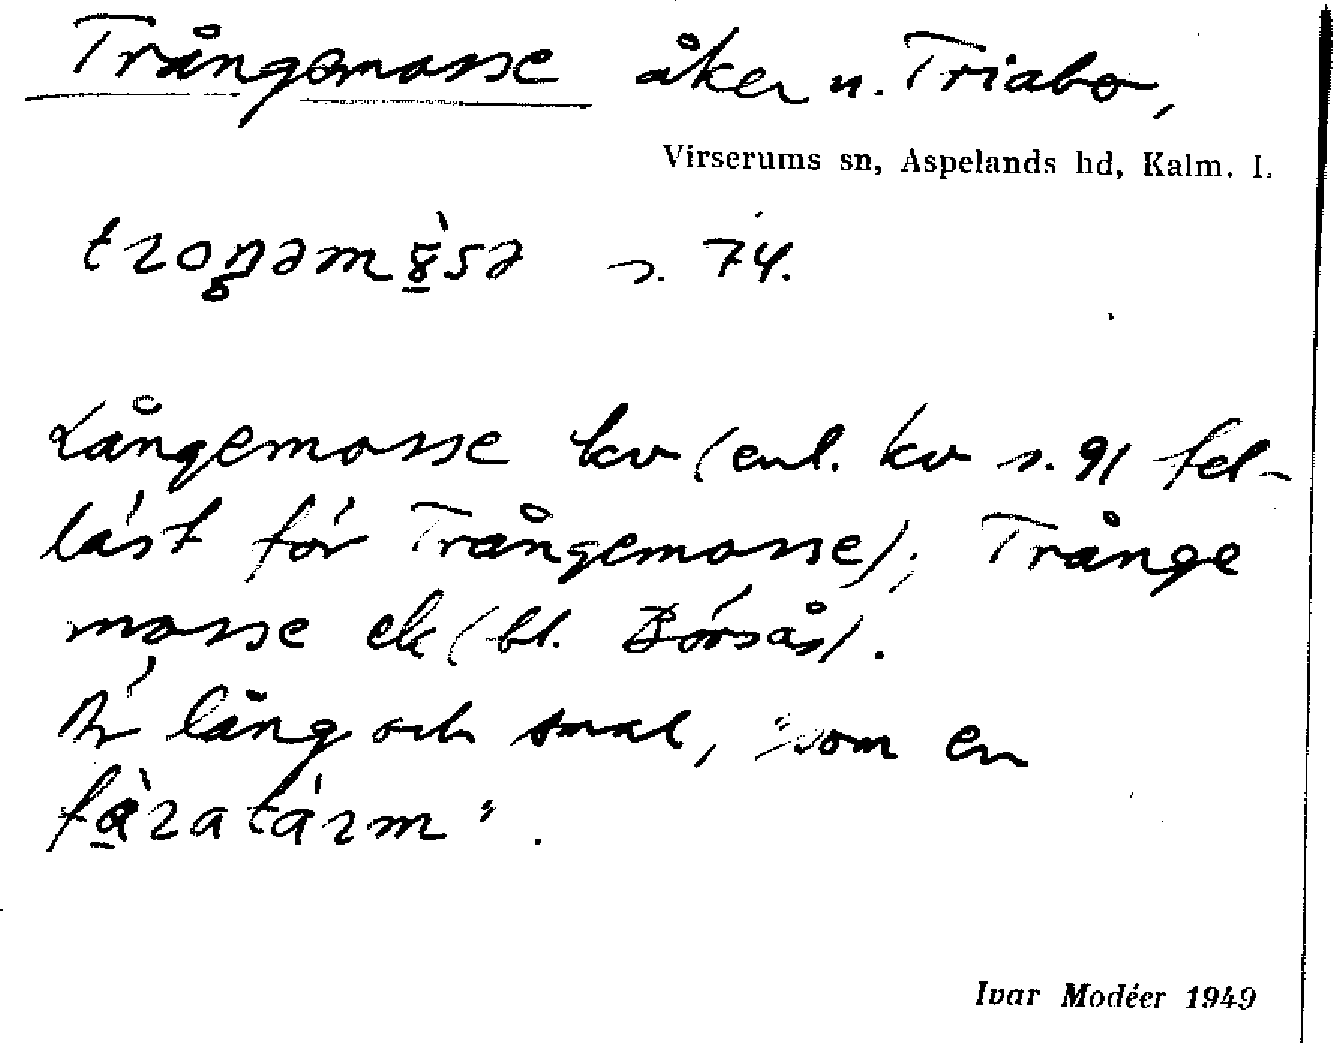 Trångemosse åker n. Triabo,
Virserums sn, Aspelands hd, Kalm. l.
s. 74.
Långemosse kv (enl. kv s. 91 fel-
läst för Trångemosse); Trånge
mosse ek (bl. Börsås).
Är lång och smal, "som en
fåratarm".
Ivar Modéer 1949